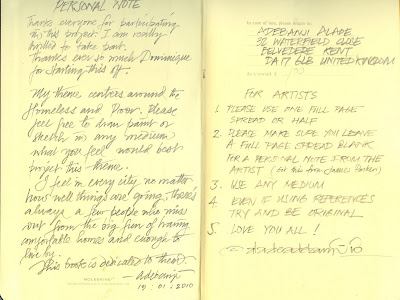 PERSONAL NOTE
Thanks everyone for participating
in this project. I am really
thrilled to take part.
Thanks ever so much Dominique
for starting this off.
My theme centers around the
Homeless and Poor. Please
feel free to draw paint or
sketch in any medium
what you feel would best
project this theme.
I feel in every city, no matter
how well things are going, there's
always a few people who miss
out from the big fun of having
comfortable homes and enough to
live by.
This book is dedicated to them.
- adebanji
19:01:2010
MOLESKINE
In case of loss, please return to:
ADEBANJI ALADE
32 WATERFIELD CLOSE
BELVEDERE KENT
DA17 6LB UNITED KINGDOM
As a reward: $
FOR ARTISTS
1. PLEASE USE ONE FULL PAGE
SPREAD OR HALF
2. PLEASE MAKE SURE YOU LEAVE
A FULL PAGE SPREAD BLANK
FOR A PERSONAL NOTE FROM THE
ARTIST
3. USE ANY MEDIUM
4. EVEN IF USING REFERENCES
TRY AND BE ORIGINAL
5. LOVE YOU ALL!